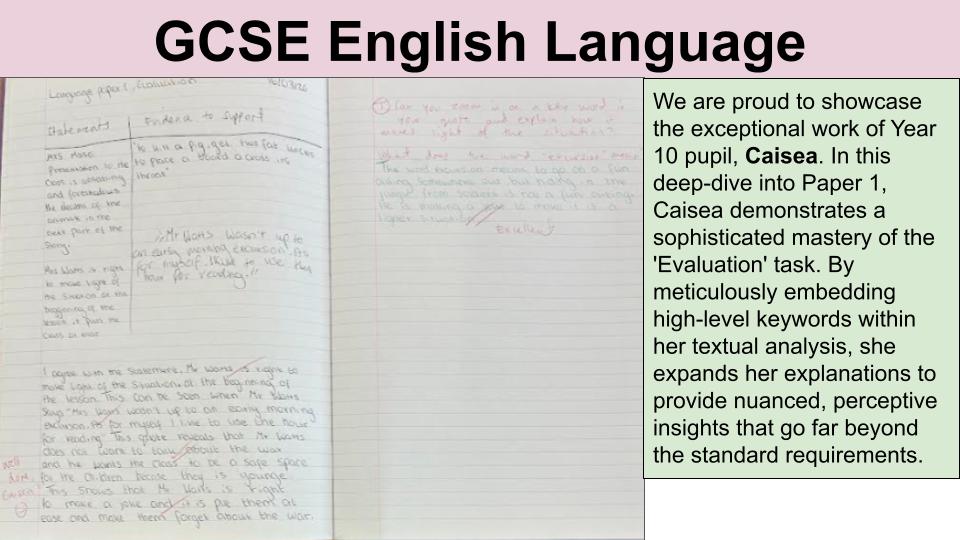 GCSE English Language
Language paper 1, Evaluation
Statements
Evidence to support
Mrs. Mabo
Presentation to the
class is
and foreshadows
the deaths of the
animals in the
next part of the
Story.
Mrs Watts is right
to make light of
the Situation at the
beggining of the
lesson it puts the
Class at ease
to place a board across its
throat"
"Mr Watts wasn't up to
an early morning excursion. As
for myself. I like to use this
hour for reading."
I agree with the Statement. Mr Watts is right to
make light of the Situation at the beginning of
the lesson. This can be seen when Mr Watts
Says "Mrs Watts wasn't up to an early morning
excursion. As for myself I like to use one hour
for reading" This quote reveals that Mr Watts
does not want to talk about the war
and he wants the class to be a safe space
for the Children becase they is younge
This shows that Mr Watts is right
to make a joke and it is put them at
ease and make them forget about the war.
well
done
Caisea
① Can you zoom in on a key word in
your quote and explain how it
makes light of the situation?
What does the word "excursion" mean?
The word excursion means to go on a fun
outing Somewhere but hiding in the
jungle from soldiers is not a fun outing.
He is making a joke to make it is a
situation
Excellent
We are proud to showcase
the exceptional work of Year
10 pupil, Caisea. In this
deep-dive into Paper 1,
Caisea demonstrates a
sophisticated mastery of the
'Evaluation' task. By
meticulously embedding
high-level keywords within
her textual analysis, she
expands her explanations to
provide nuanced, perceptive
insights that go far beyond
the standard requirements.